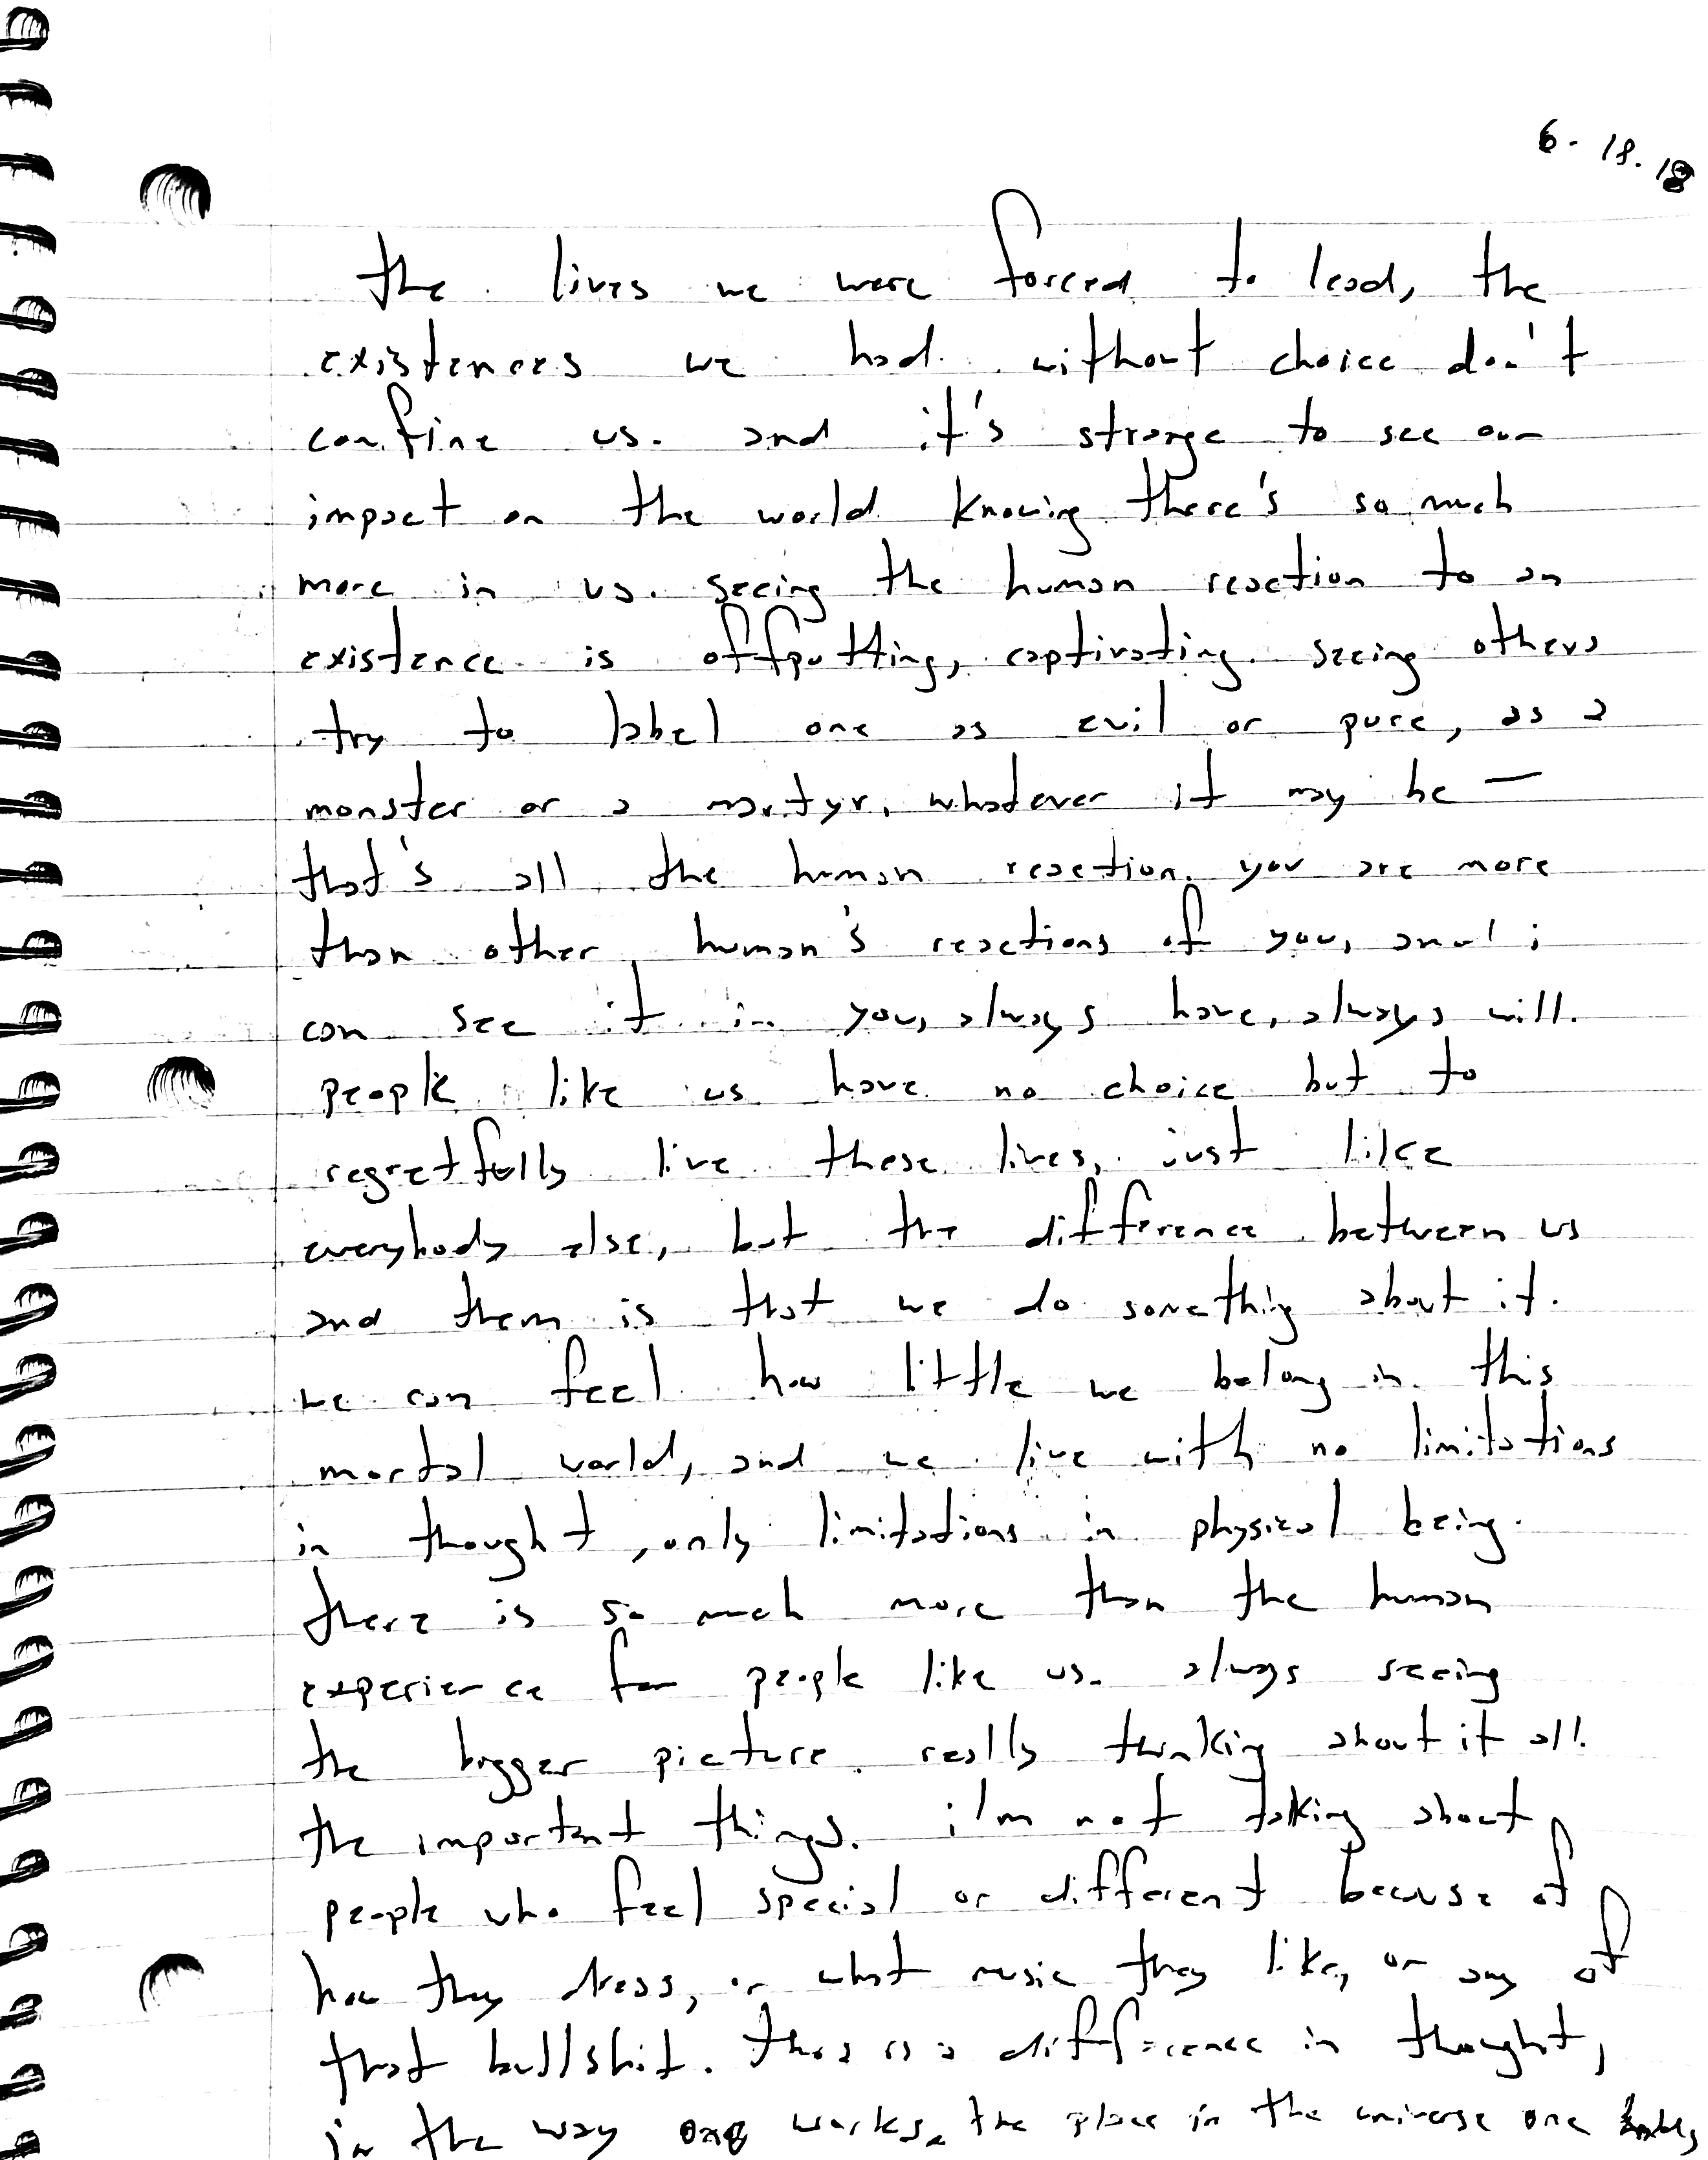 6.18.18
the lives we were forced to lead, the
existences we had without choice don't
confine us. and it's strange to see our
impact on the world knowing there's so much
more in us. seeing the human reaction to an
existence is offputting, captivating. seeing others
try to label one as evil or pure, as a
monster or a martyr, whatever it may be —
that's all the human reaction. you are more
than other human's reactions of you, and i
can see it in you, always have, always will.
people like us have no choice but to
regretfully live these lives, just like
everybody else, but the difference between us
and them is that we do something about it.
we can feel how little we belong in this
mortal world, and we live with no limitations
in thought, only limitations in physical being.
there is so much more than the human
experience for people like us. always seeing
the bigger picture. really thinking about it all.
the important things. i'm not talking about
people who feel special or different because of
how they dress, or what music they like, or any of
that bullshit. there is a difference in thought,
in the way one works, the place in the universe one holds